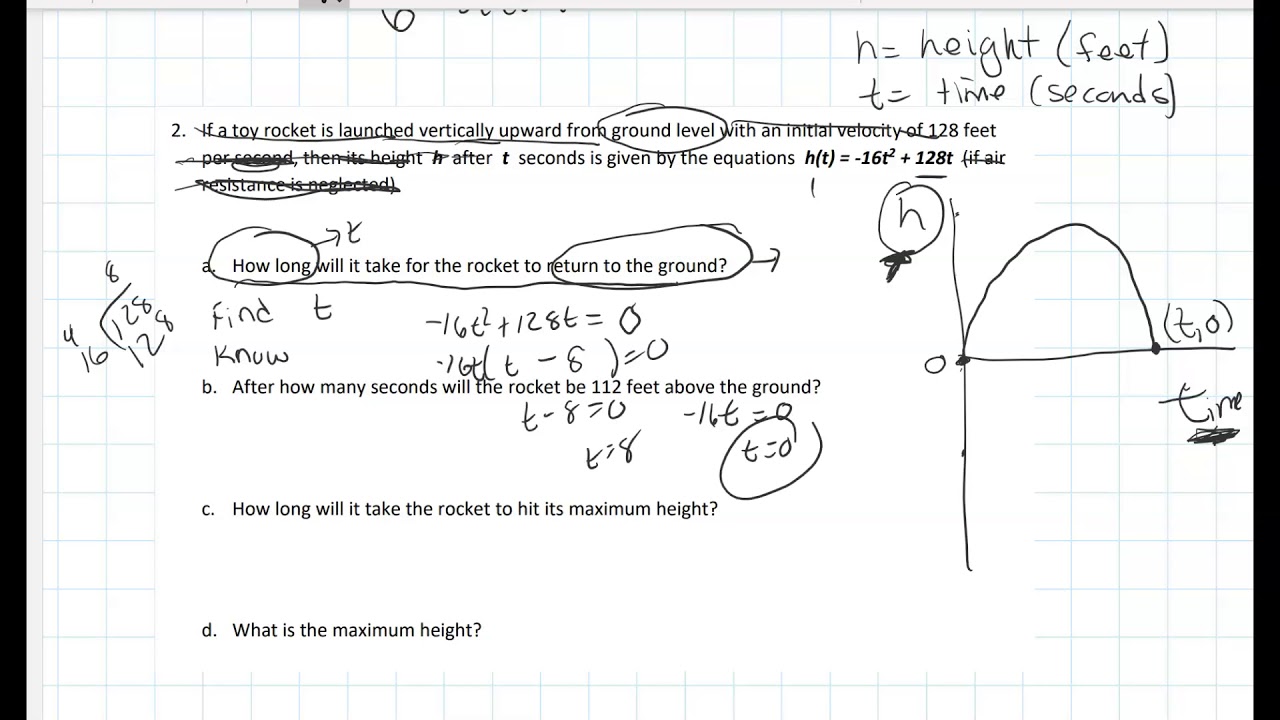 h= height (feet)
t= time (seconds)
2. If a toy rocket is launched vertically upward from ground level with an initial velocity of 128 feet
per second, then its height h after t seconds is given by the equations h(t) = -16t² + 128t (if air
resistance is neglected)
h
→ t
a. How long will it take for the rocket to return to the ground? →
8
128
4
16
128
Find t
-16t²+128t = 0
(t,0)
Know
-16t(t - 8)=0
0
b. After how many seconds will the rocket be 112 feet above the ground?
time
t-8=0
-16t=0
t=8
t=0
c. How long will it take the rocket to hit its maximum height?
d. What is the maximum height?